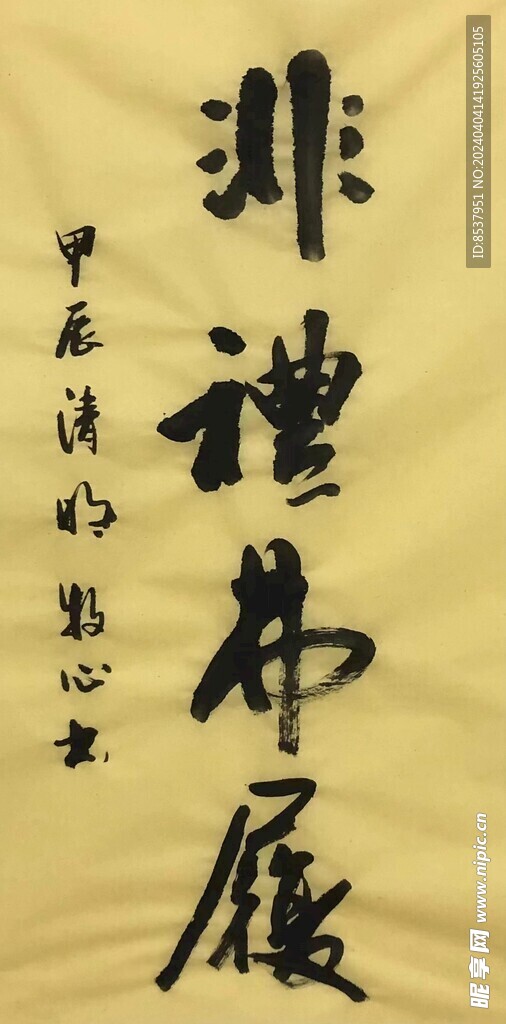 非禮弗履
甲辰清明牧心书
ID:8537951 NO:20240404141925605105
昵享网 www.nipic.cn